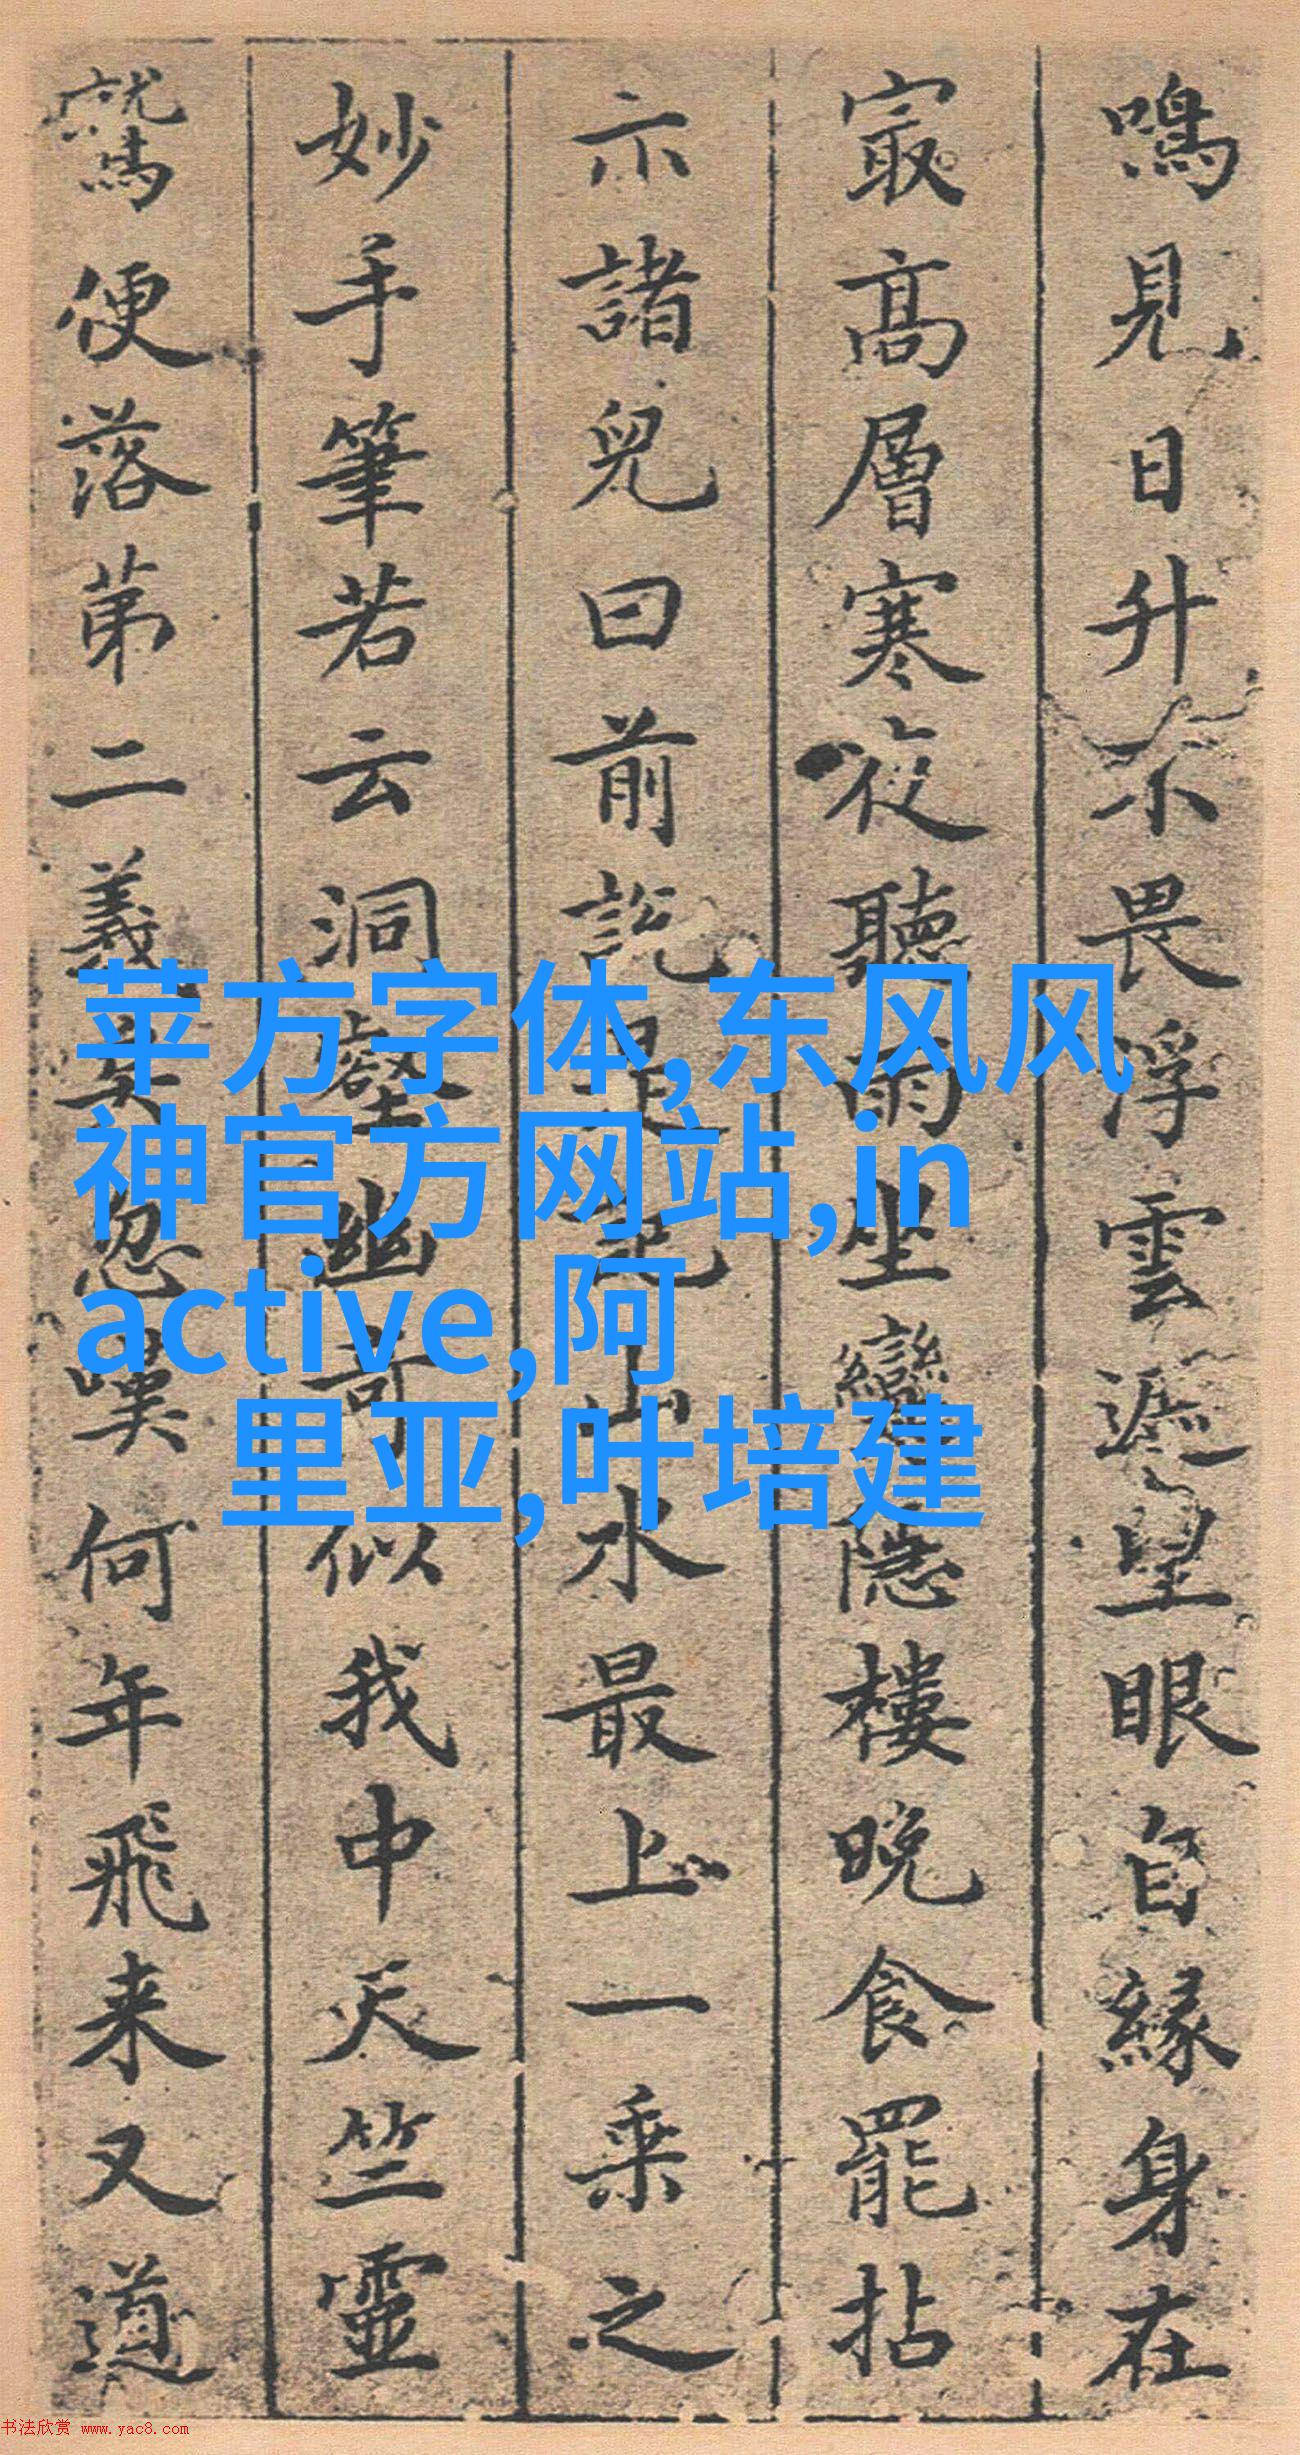 鳴見日升不畏浮雲遮望眼自緣身在
㝡高層寒夜聽雨坐隱樓晚食罷拈
示諸兒曰前說是也山水最上一乘之
妙手筆若云洞壑幽奇似我中天竺靈
鷲便落第二義矣忽嘆何年飛来又道
苹方字体,东风风
神官方网站,in
active,阿
里亚,叶培建
书法欣赏 www.yac8.com